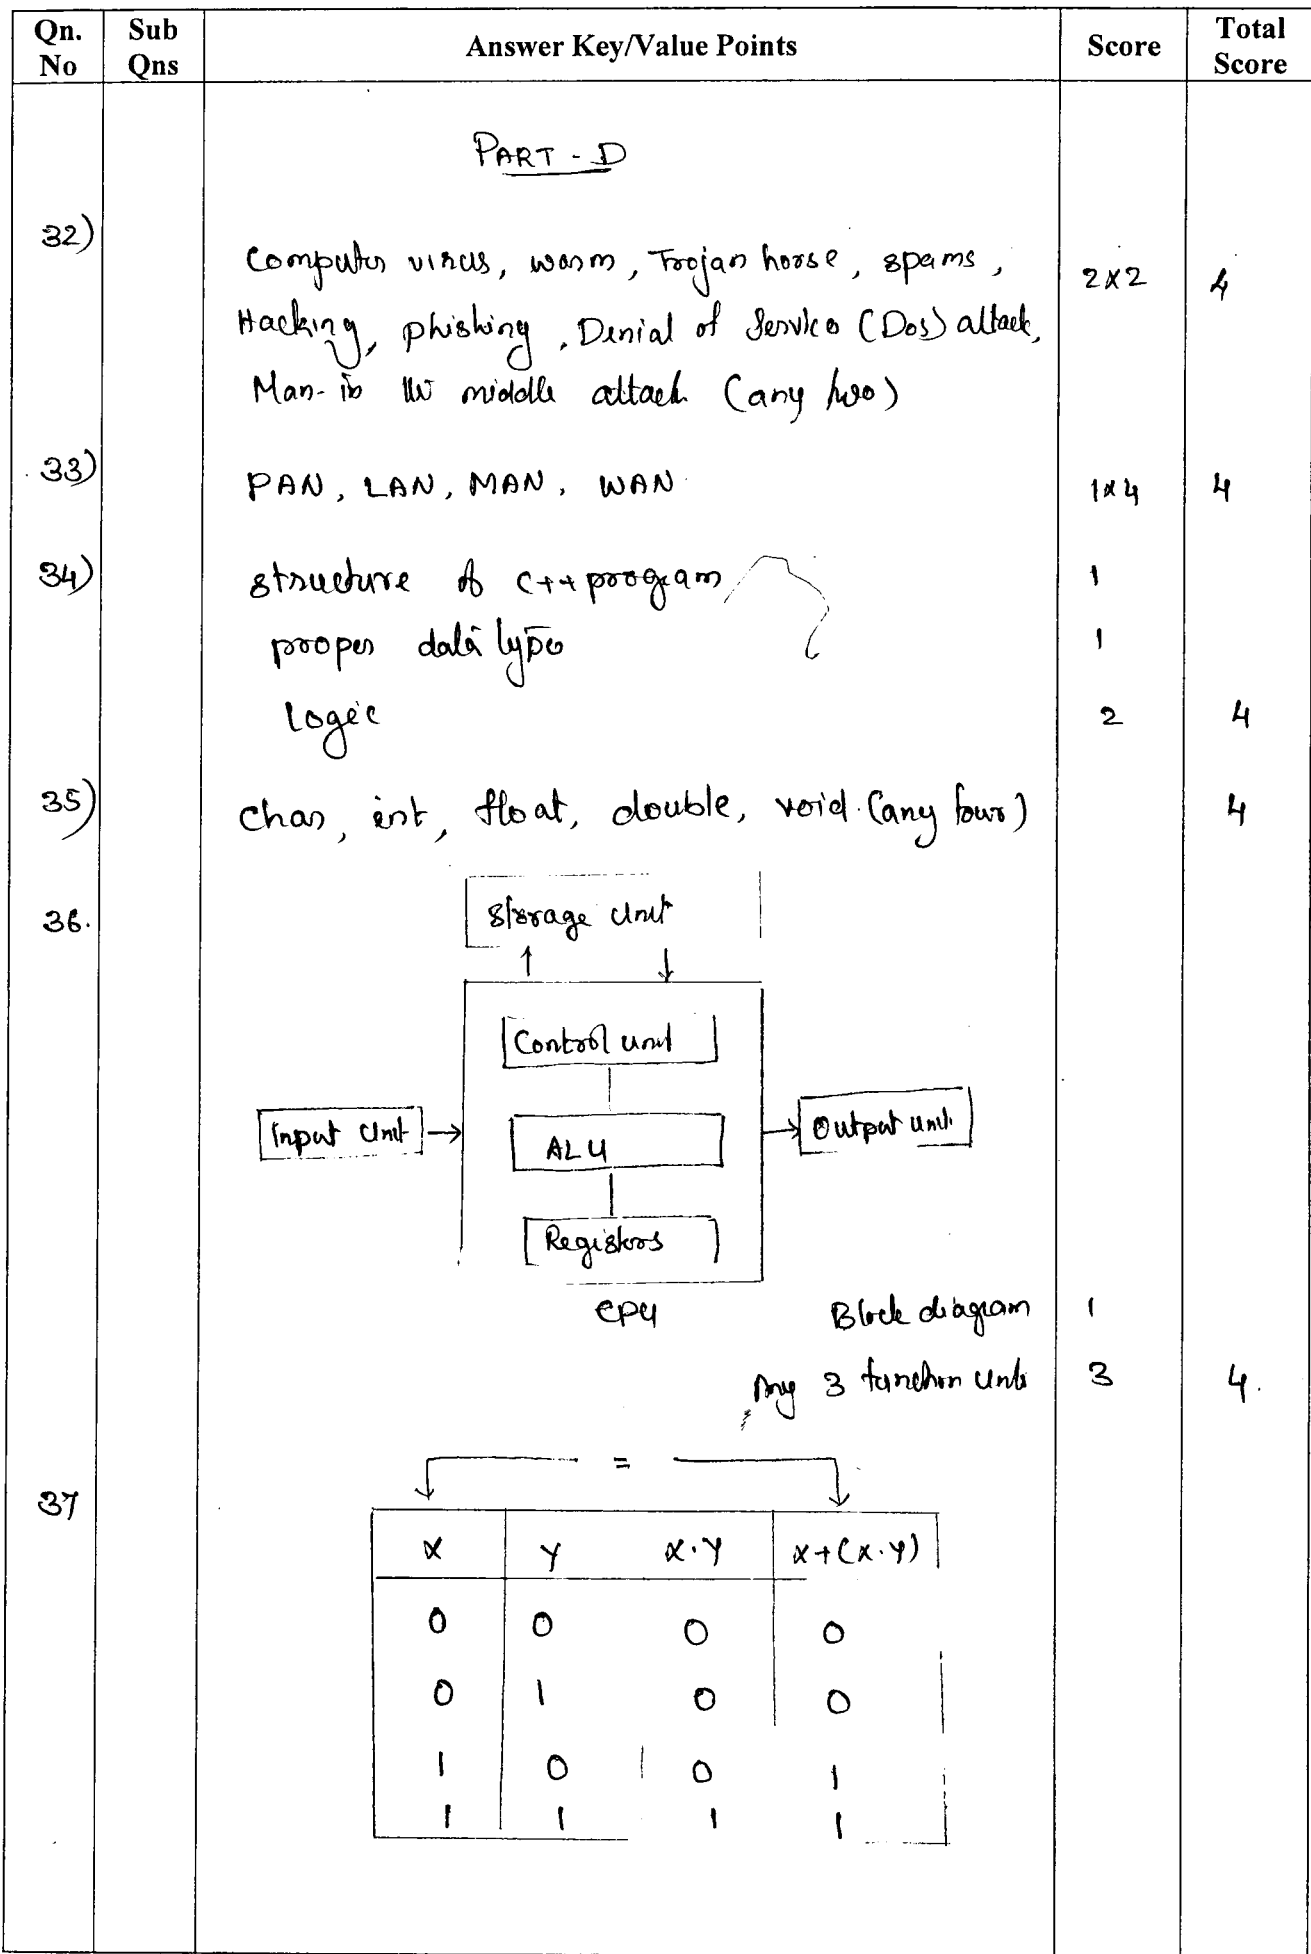 Qn. No Sub Qns Answer Key/Value Points Score Total Score
PART - D
32) Computer virus, worm, Trojan horse, spams, 2x2 4
Hacking, phishing, Denial of Service (Dos) attack,
Man-in the middle attack (any two)
33) PAN, LAN, MAN, WAN 1x4 4
34) structure of C++ program 1
proper data type 1
Logic 2 4
35) char, int, float, double, void (any four) 4
36. Storage Unit
Control unit
Input Unit ALU Output unit
Registers
CPU Block diagram 1
Any 3 function 3 4.
=
37 X Y X.Y X+(X.Y)
0 0 0 0
0 1 0 0
1 0 0 1
1 1 1 1